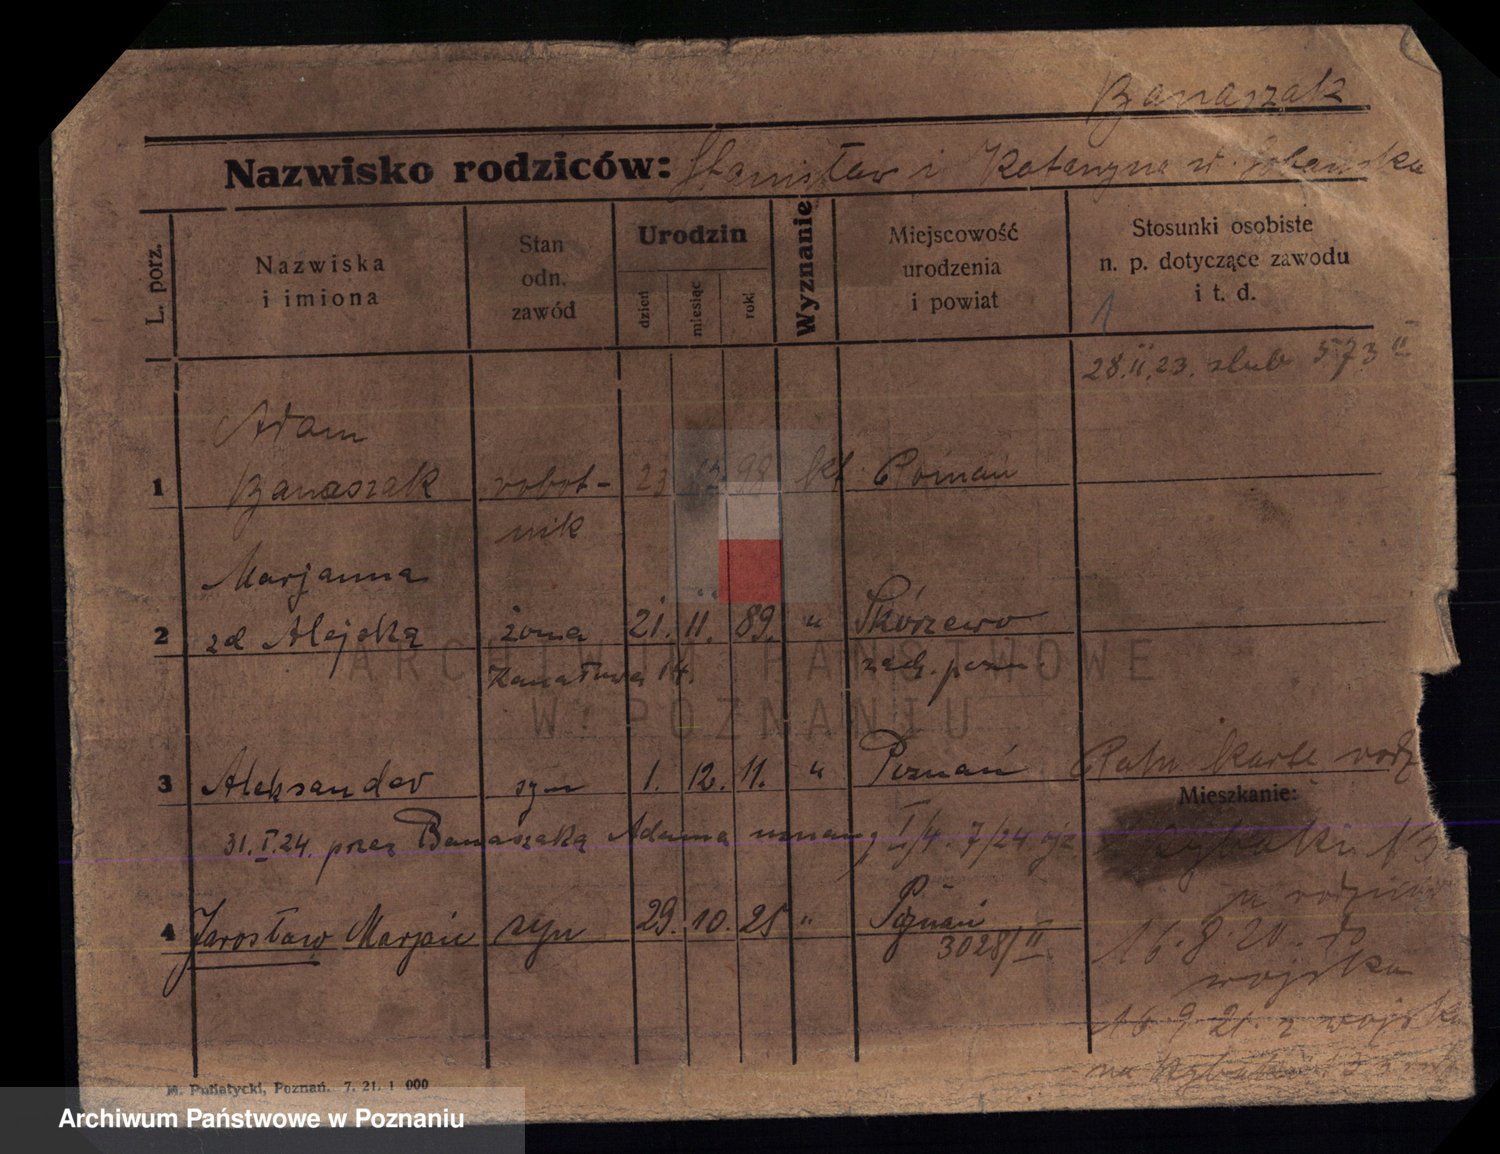 Banaszak
Nazwisko rodziców: Stanisław i Katarzyna
L. porz.
Nazwiska
i imiona
Stan
odn.
zawód
Urodzin
dzień
miesiąc
rok
Wyznanie
Miejscowość
urodzenia
i powiat
Stosunki osobiste
n. p. dotyczące zawodu
i t. d.
1
28.II.23. slub 573 II
Adam
1 Banaszak robot- 23 12 98 kt Poznań
nik
Marjanna
2 zd Alejską żona 21. 11. 89. " Skórzewo
Kanałowa 14. zach. pozn.
3 Aleksander syn 1. 12. 11. " Poznań
Mieszkanie:
31.I.24. przez Banaszaką Adama uznany I/4. 7/24
4 Jarosław Marjan syn 29. 10. 25 " Poznań
3028/II
16.8.20. do
wojska
16 9 21. z wojska
na
M. Putiatycki, Poznań. 7. 21. 1 000
ARCHIWUM PAŃSTWOWE
W POZNANIU
Archiwum Państwowe w Poznaniu